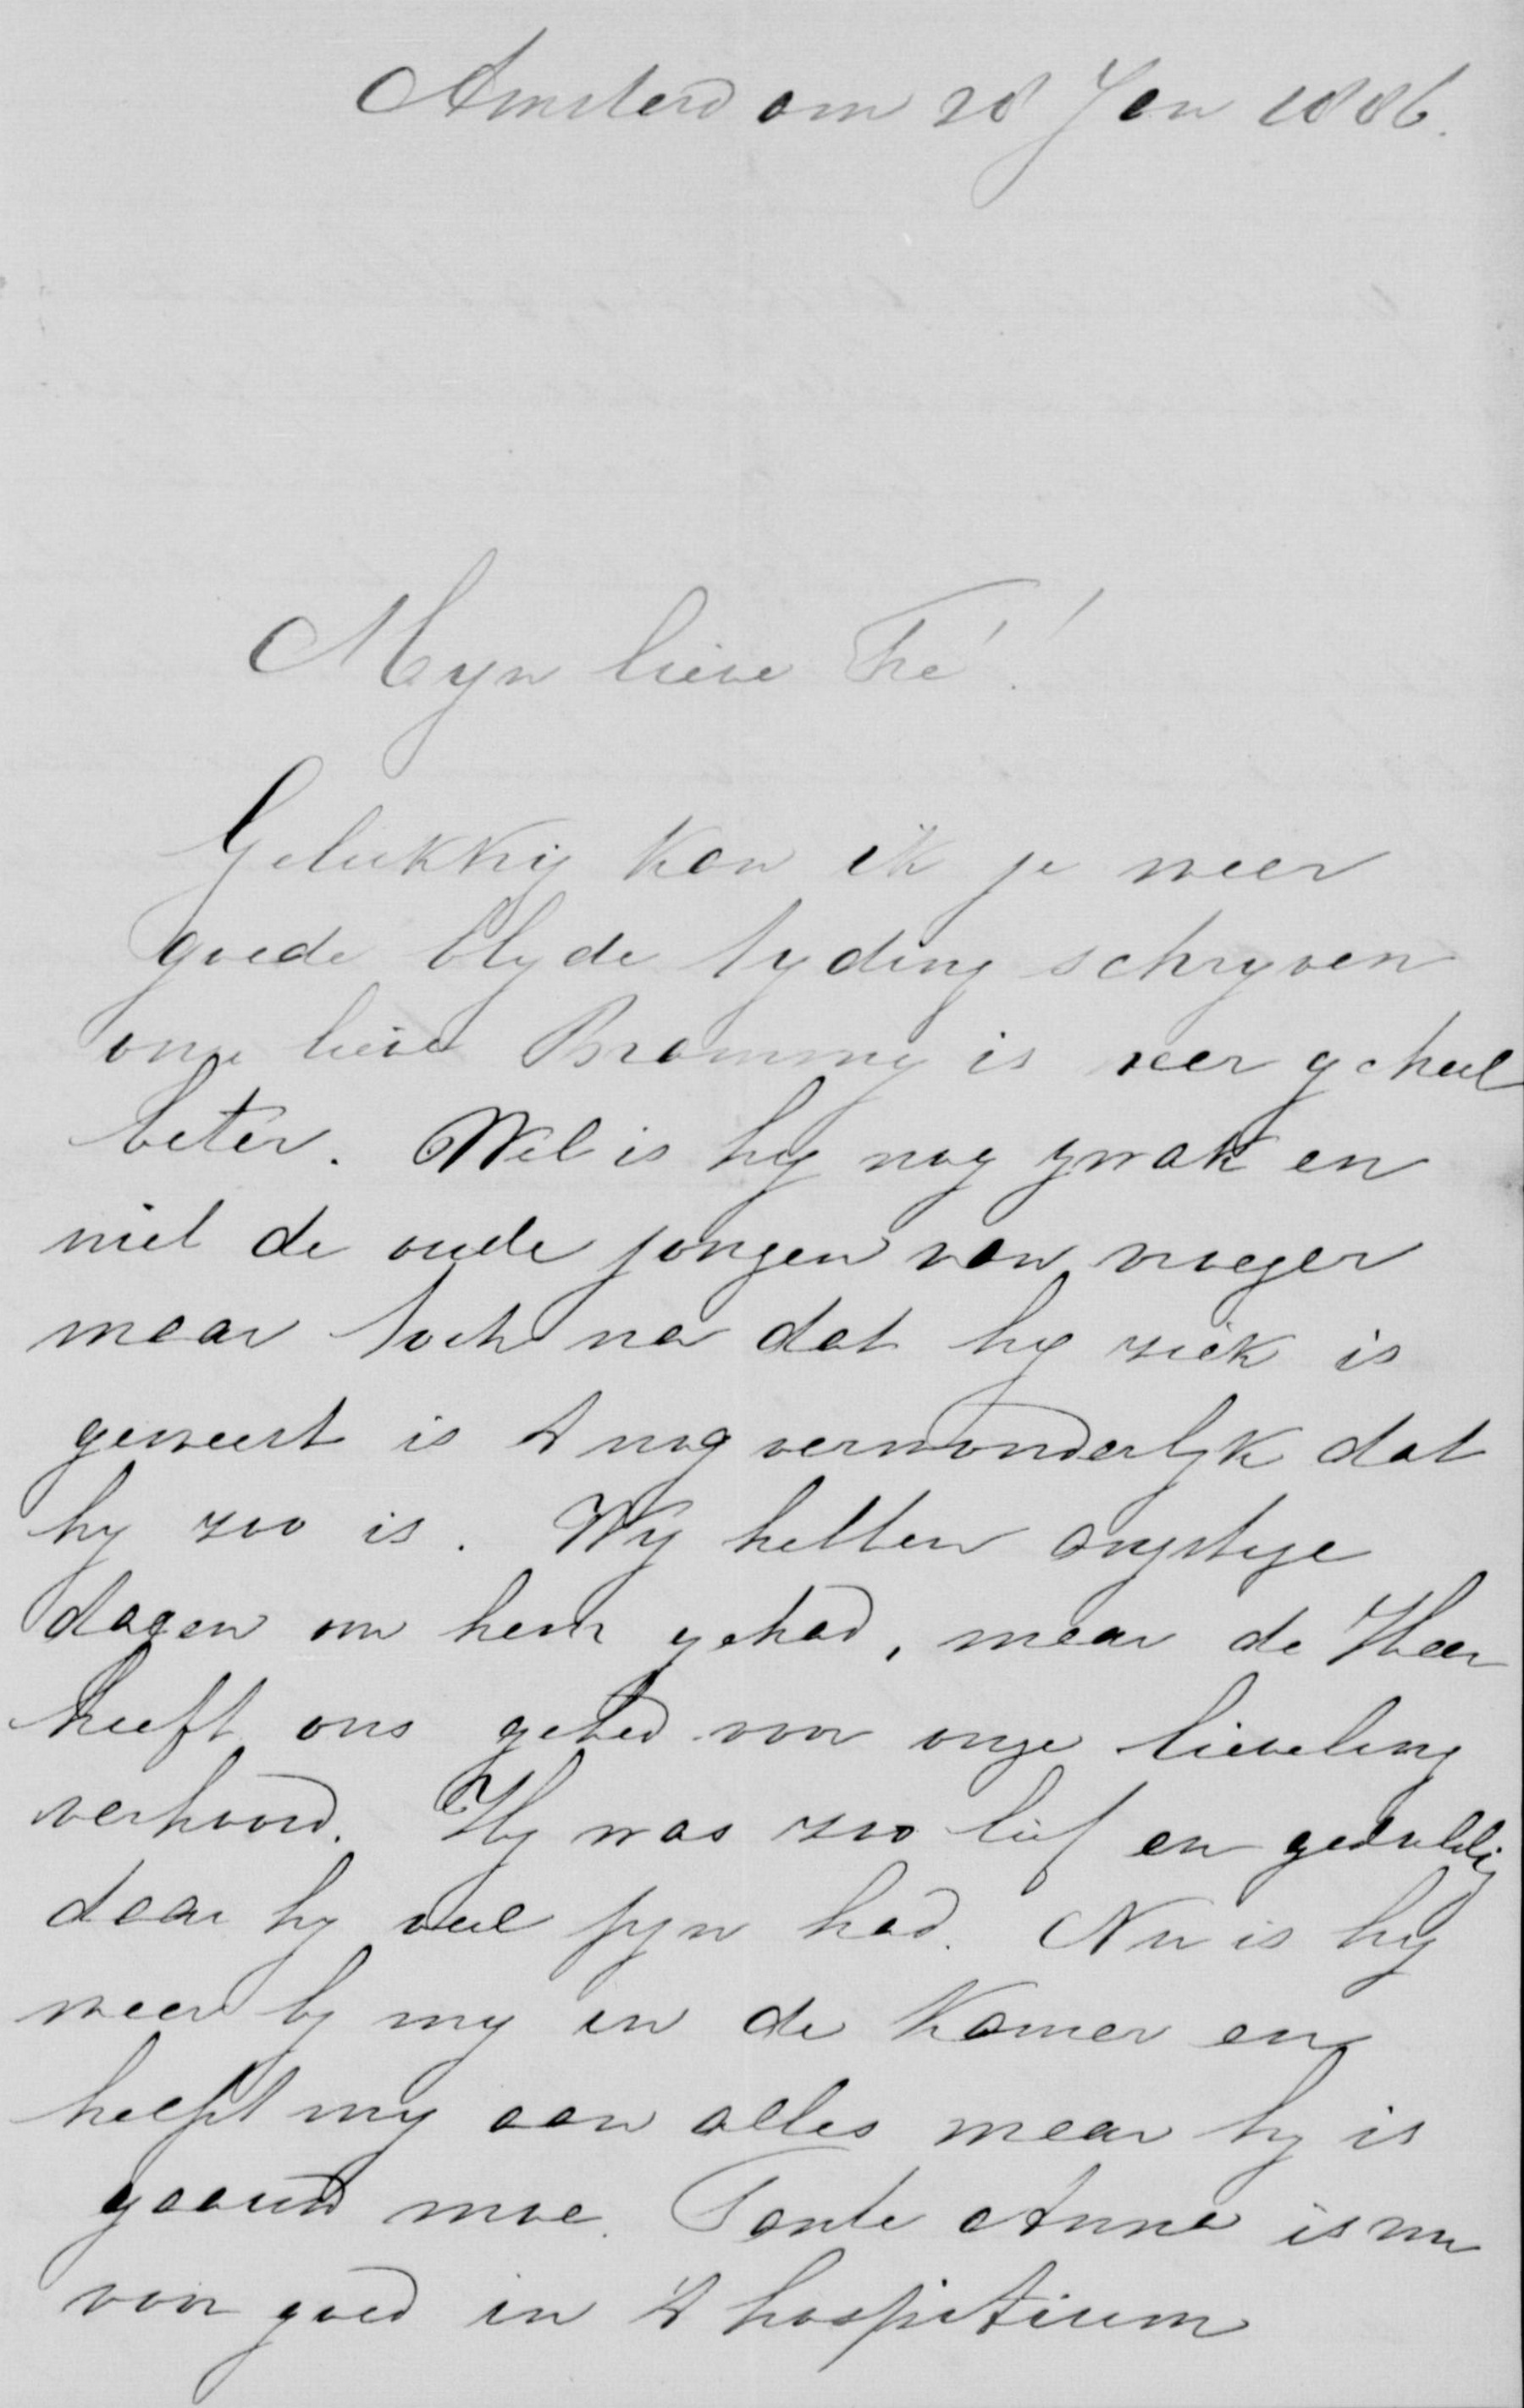 Amsterdam 28 Jan 1886.
Myn lieve Fré!
Gelukkig kan ik je weer
goede blyde tyding schryven
onze lieve Brammy is weer geheel
beter. Wel is hy nog zwak en
niet de oude jongen van vroeger
maar toch na dat hy ziek is
geweest is 't nog verwonderlyk dat
hy zoo is. Wy hebben angstige
dagen om hem gehad, maar de Heer
heeft ons gebed voor onze lieveling
verhoord. Hy was zoo lief en geduldig
daar hy veel pyn had. Nu is hy
weer by my in de kamer en
helpt my aan alles maar hy is
gaauw moe. Tante Anna is nu
voor goed in 't hospitium